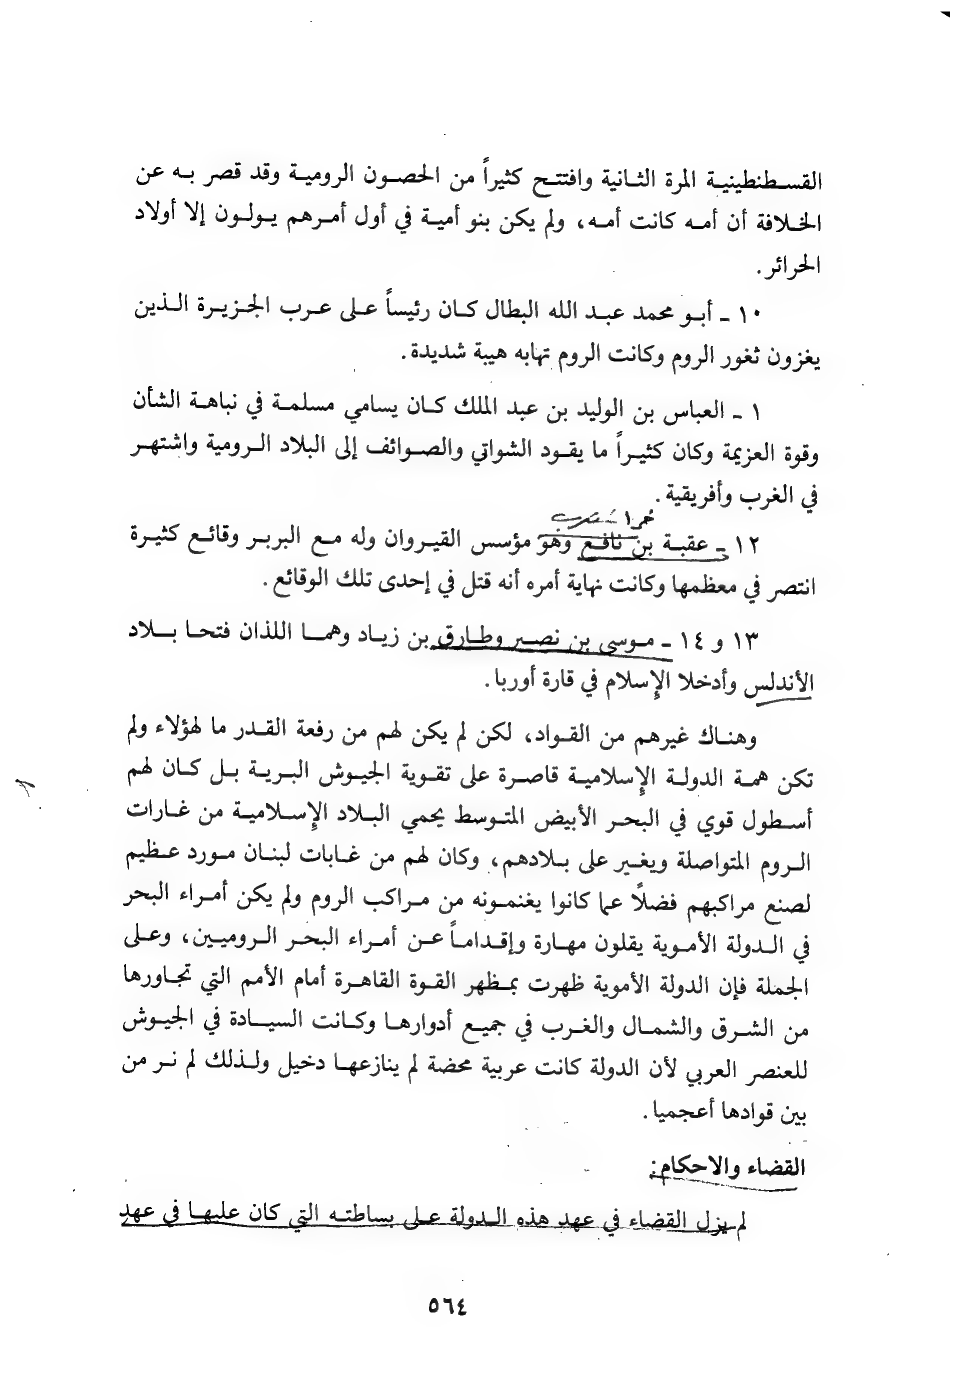 القسطنطينية المرة الثانية وافتتح كثيراً من الحصون الرومية وقد قصر به عن
الخلافة أن أمه كانت أمه، ولم يكن بنو أمية في أول أمرهم يولون إلا أولاد
الحرائر.
١٠ ـ أبو محمد عبد الله البطال كان رئيساً على عرب الجزيرة الذين
يغزون ثغور الروم وكانت الروم تهابه هيبة شديدة.
١ ـ العباس بن الوليد بن عبد الملك كان يسامي مسلمة في نباهة الشأن
وقوة العزيمة وكان كثيراً ما يقود الشواتي والصوائف إلى البلاد الرومية واشتهر
في الغرب وأفريقية.
١٢ ـ عقبة بن نافع وهو مؤسس القيروان وله مع البربر وقائع كثيرة
انتصر في معظمها وكانت نهاية أمره أنه قتل في إحدى تلك الوقائع.
١٣ و ١٤ ـ موسى بن نصير وطارق بن زياد وهما اللذان فتحا بلاد
الأندلس وأدخلا الإسلام في قارة أوربا.
وهناك غيرهم من القواد، لكن لم يكن لهم من رفعة القدر ما لهؤلاء ولم
تكن همة الدولة الإسلامية قاصرة على تقوية الجيوش البرية بل كان لهم
أسطول قوي في البحر الأبيض المتوسط يحمي البلاد الإسلامية من غارات
الروم المتواصلة ويغير على بلادهم، وكان لهم من غابات لبنان مورد عظيم
لصنع مراكبهم فضلاً عما كانوا يغنمونه من مراكب الروم ولم يكن أمراء البحر
في الدولة الأموية يقلون مهارة وإقداماً عن أمراء البحر الروميين، وعلى
الجملة فإن الدولة الأموية ظهرت بمظهر القوة القاهرة أمام الأمم التي تجاورها
من الشرق والشمال والغرب في جميع أدوارها وكانت السيادة في الجيوش
للعنصر العربي لأن الدولة كانت عربية محضة لم ينازعها دخيل ولذلك لم نر من
بين قوادها أعجميا.
القضاء والاحكام:
لم يزل القضاء في عهد هذه الدولة على بساطته التي كان عليها في عهد
٥٦٤